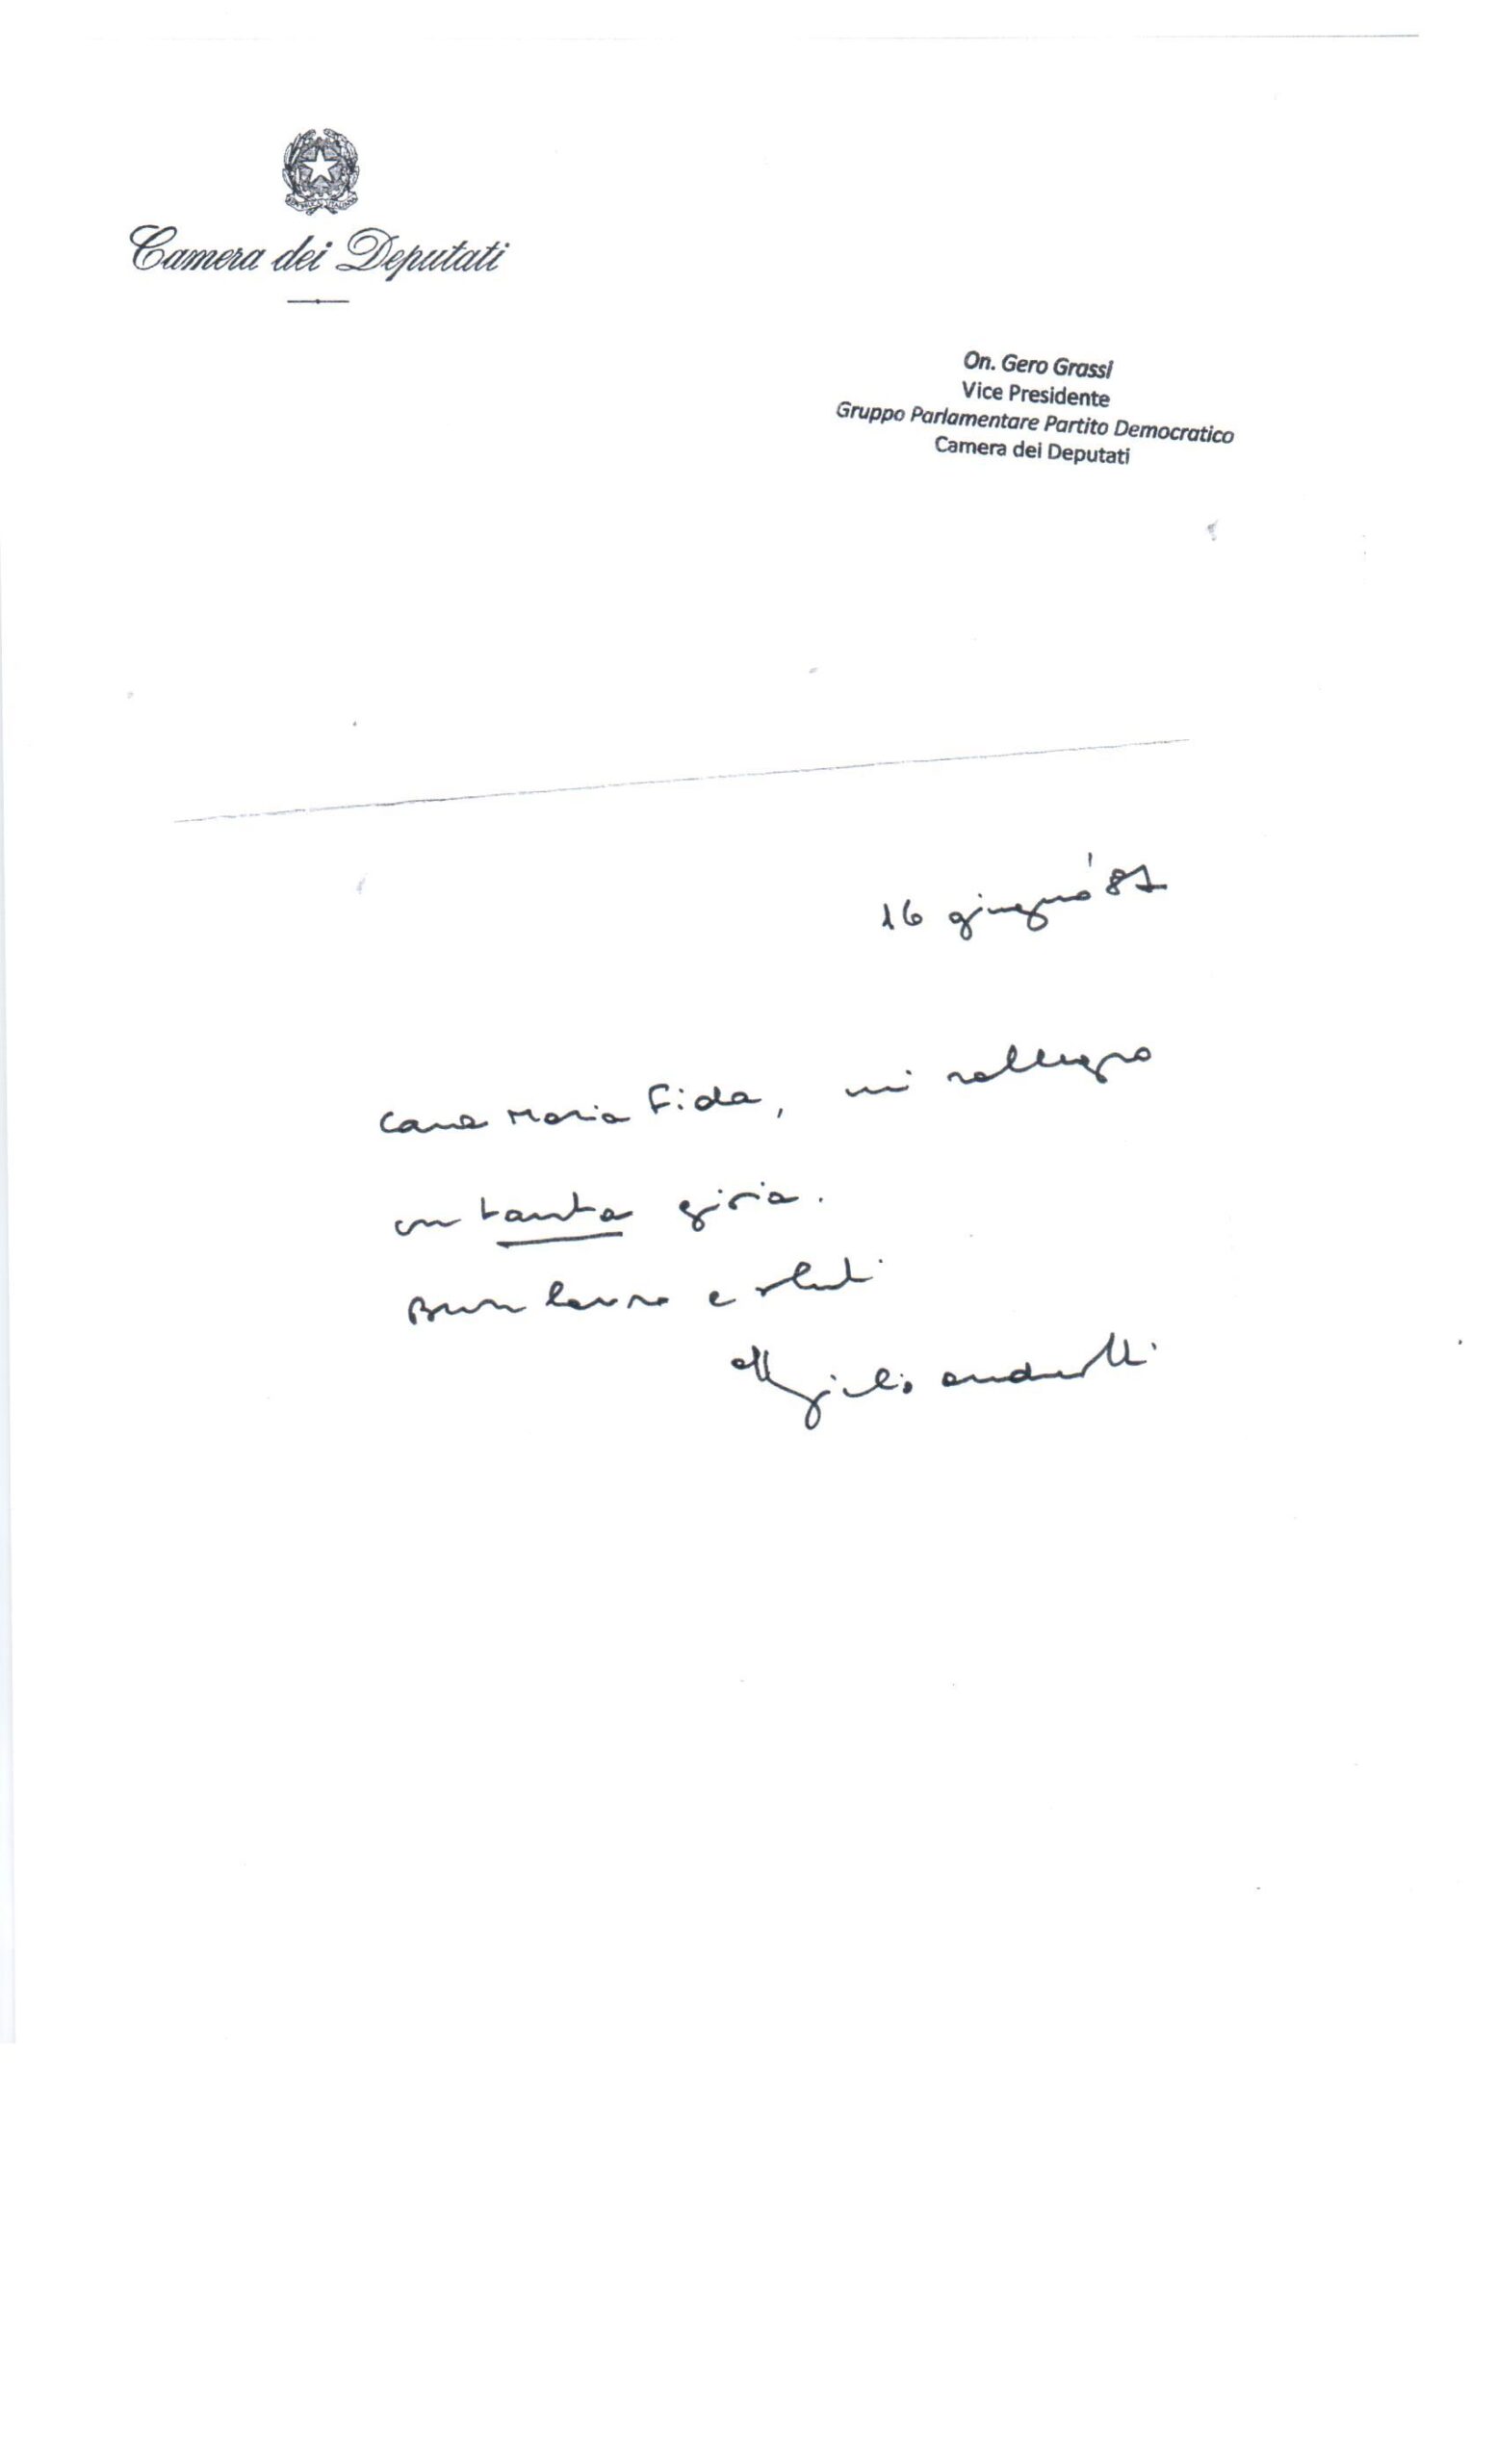 Camera dei Deputati
On. Gero Grassi
Vice Presidente
Gruppo Parlamentare Partito Democratico
Camera dei Deputati
16 giugno '87
Cara Maria Fida, mi rallegro
con tanta gioia.
Buon lavoro e saluti
Giulio Andreotti